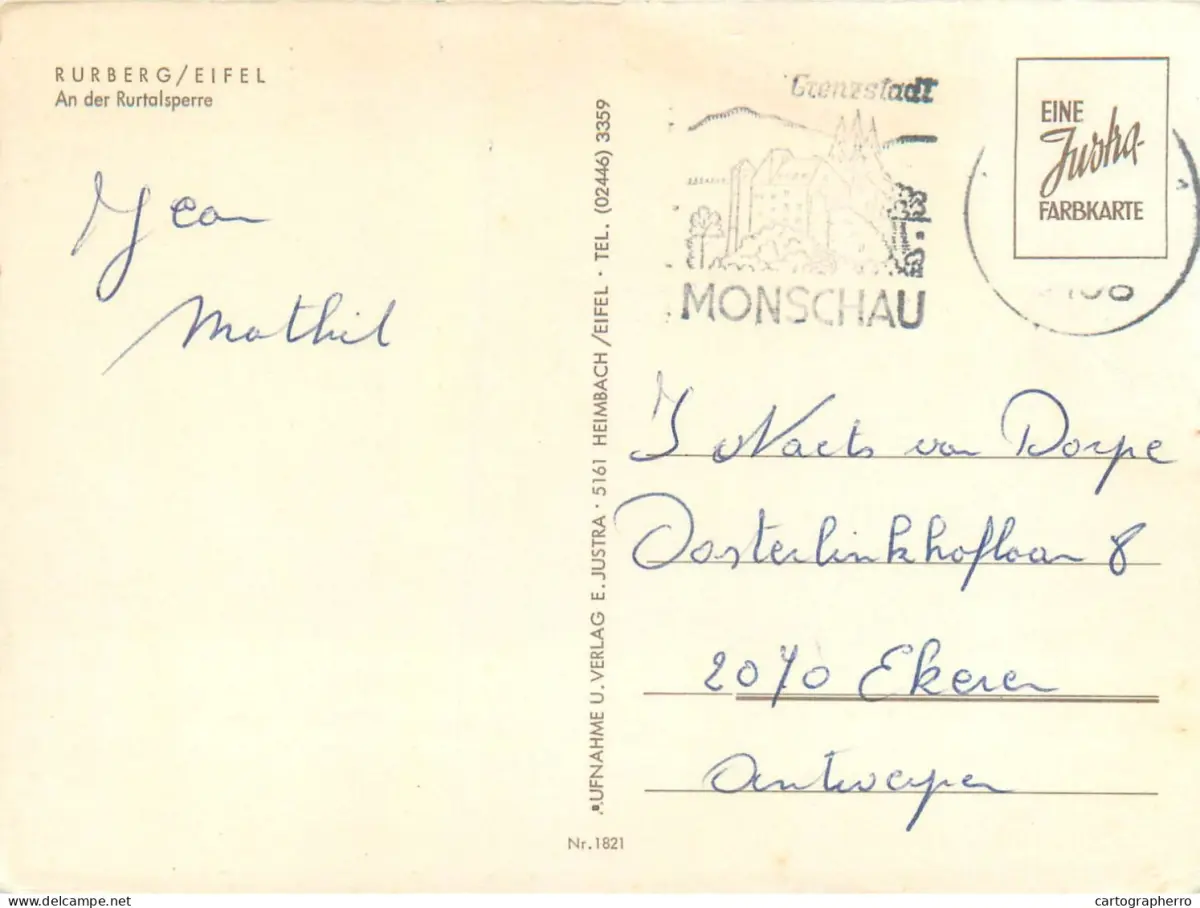 RURBERG/EIFEL
An der Rurtalsperre
Jean
Mathil
AUFNAHME U. VERLAG E. JUSTRA · 5161 HEIMBACH/EIFEL · TEL. (02446) 3359
Nr. 1821
Grenzstadt
MONSCHAU
EINE
Justra-
FARBKARTE
J Naets van Dorpe
Oosterlinkhoflaan 8
2070 Ekeren
Antwerpen
delcampe.net
cartographerro